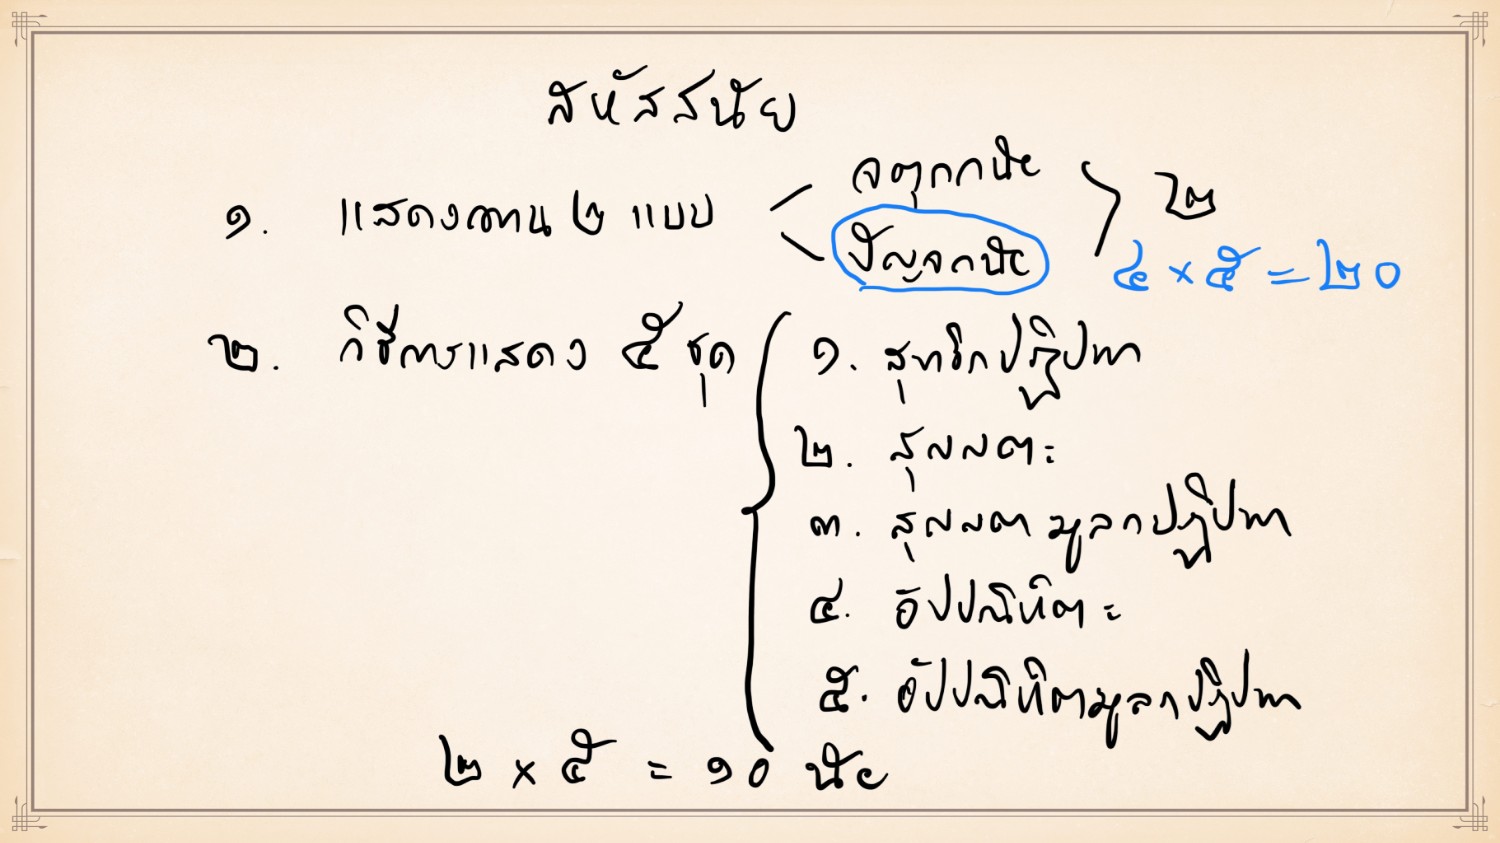 สหัสสนัย
จตุกกนัย
๑. แสดงฌาน ๒ แบบ
๒
ปัญจกนัย
๔ × ๕ = ๒๐
๒. วิธีการแสดง ๕ ชุด
๑. สุทธิกปฏิปทา
๒. สุญญตะ
๓. สุญญตามูลกปฏิปทา
๔. อัปปณิหิตะ
๕. อัปปณิหิตมูลกปฏิปทา
๒ × ๕ = ๑๐ นัย